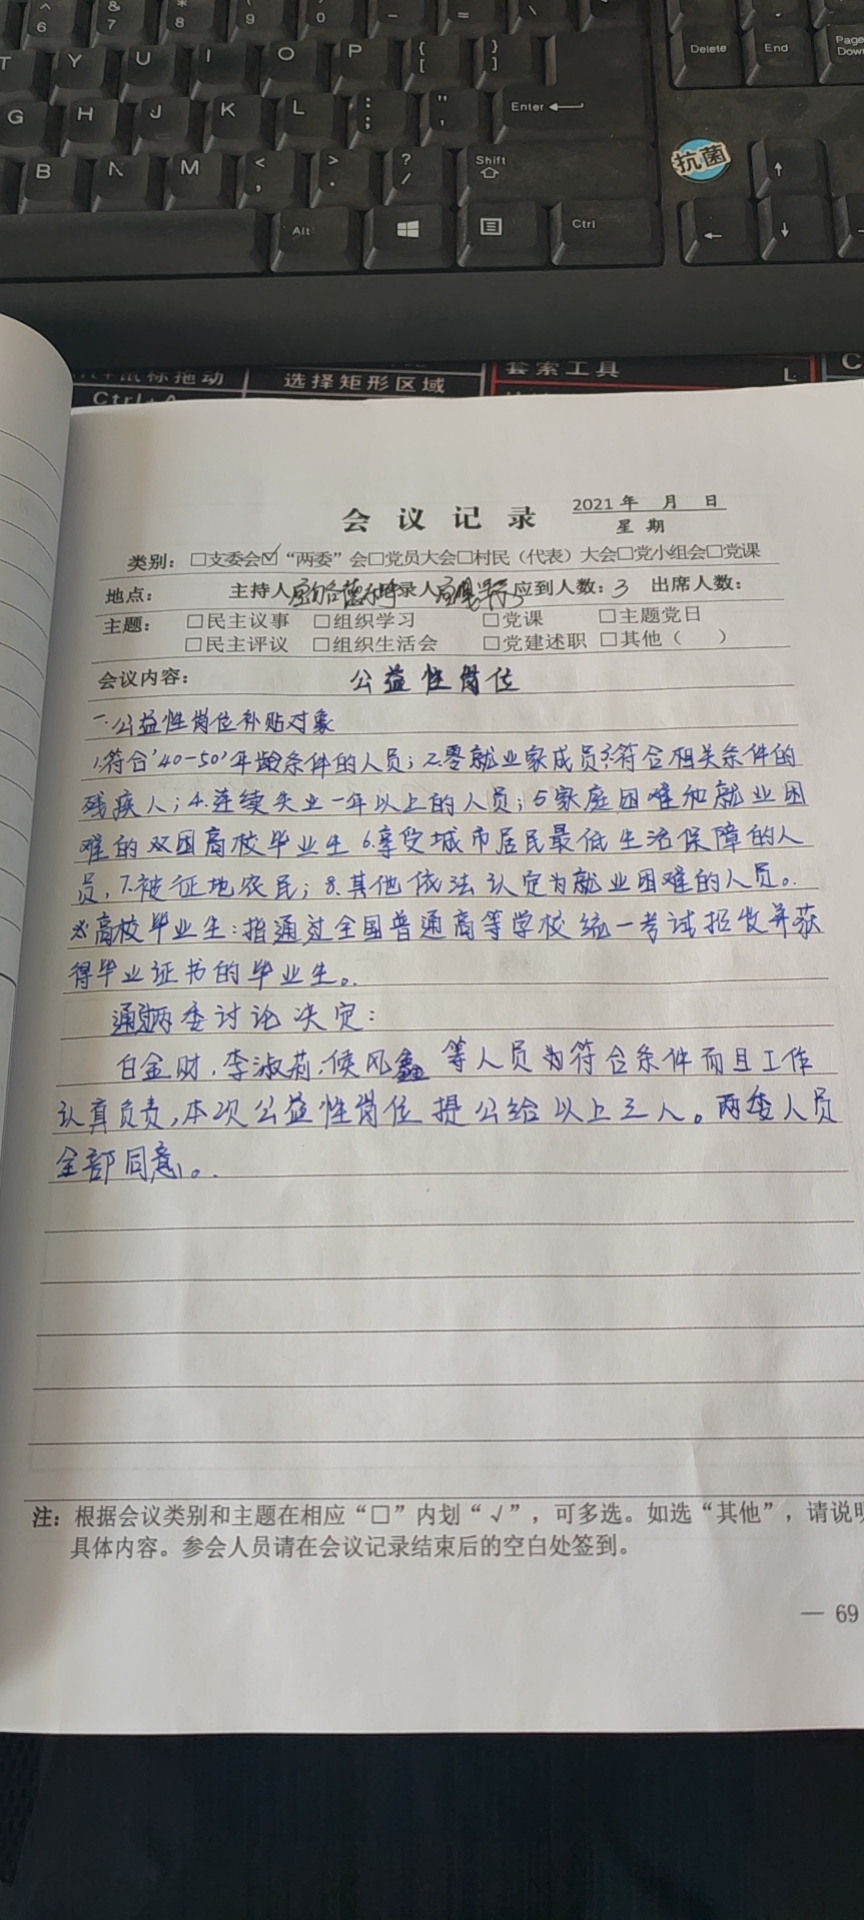 ^ 6 & 7 * 8 ( 9 ) 0 _ - + = | \
T Y U I O P { [ } ] Delete End Page Down
G H J K L : ; " ' Enter
B N M < , > . ? / Shift 抗菌
Alt Ctrl
鼠标拖动 选择矩形区域 套索工具 L
Ctrl+A C
会议记录 2021年 月 日
星期
类别：□支委会☑“两委”会□党员大会□村民（代表）大会□党小组会□党课
地点： 主持人 录人 应到人数：3 出席人数：
主题： □民主议事 □组织学习 □党课 □主题党日
□民主评议 □组织生活会 □党建述职 □其他（ ）
会议内容： 公益性岗位
一.公益性岗位补贴对象
1.符合'40-50'年龄条件的人员；2.零就业家成员3.符合相关条件的
残疾人；4.连续失业一年以上的人员；5家庭困难和就业困
难的双困高校毕业生6.享受城市居民最低生活保障的人
员，7.被征地农民；8.其他依法认定为就业困难的人员。
※高校毕业生：指通过全国普通高等学校统一考试招收并获
得毕业证书的毕业生。
通过两委讨论决定：
白金财，李淑莉，候风鑫 等人员为符合条件而且工作
认真负责，本次公益性岗位提公给以上三人。两委人员
全部同意。
注：根据会议类别和主题在相应“□”内划“√”，可多选。如选“其他”，请说明
具体内容。参会人员请在会议记录结束后的空白处签到。
— 69